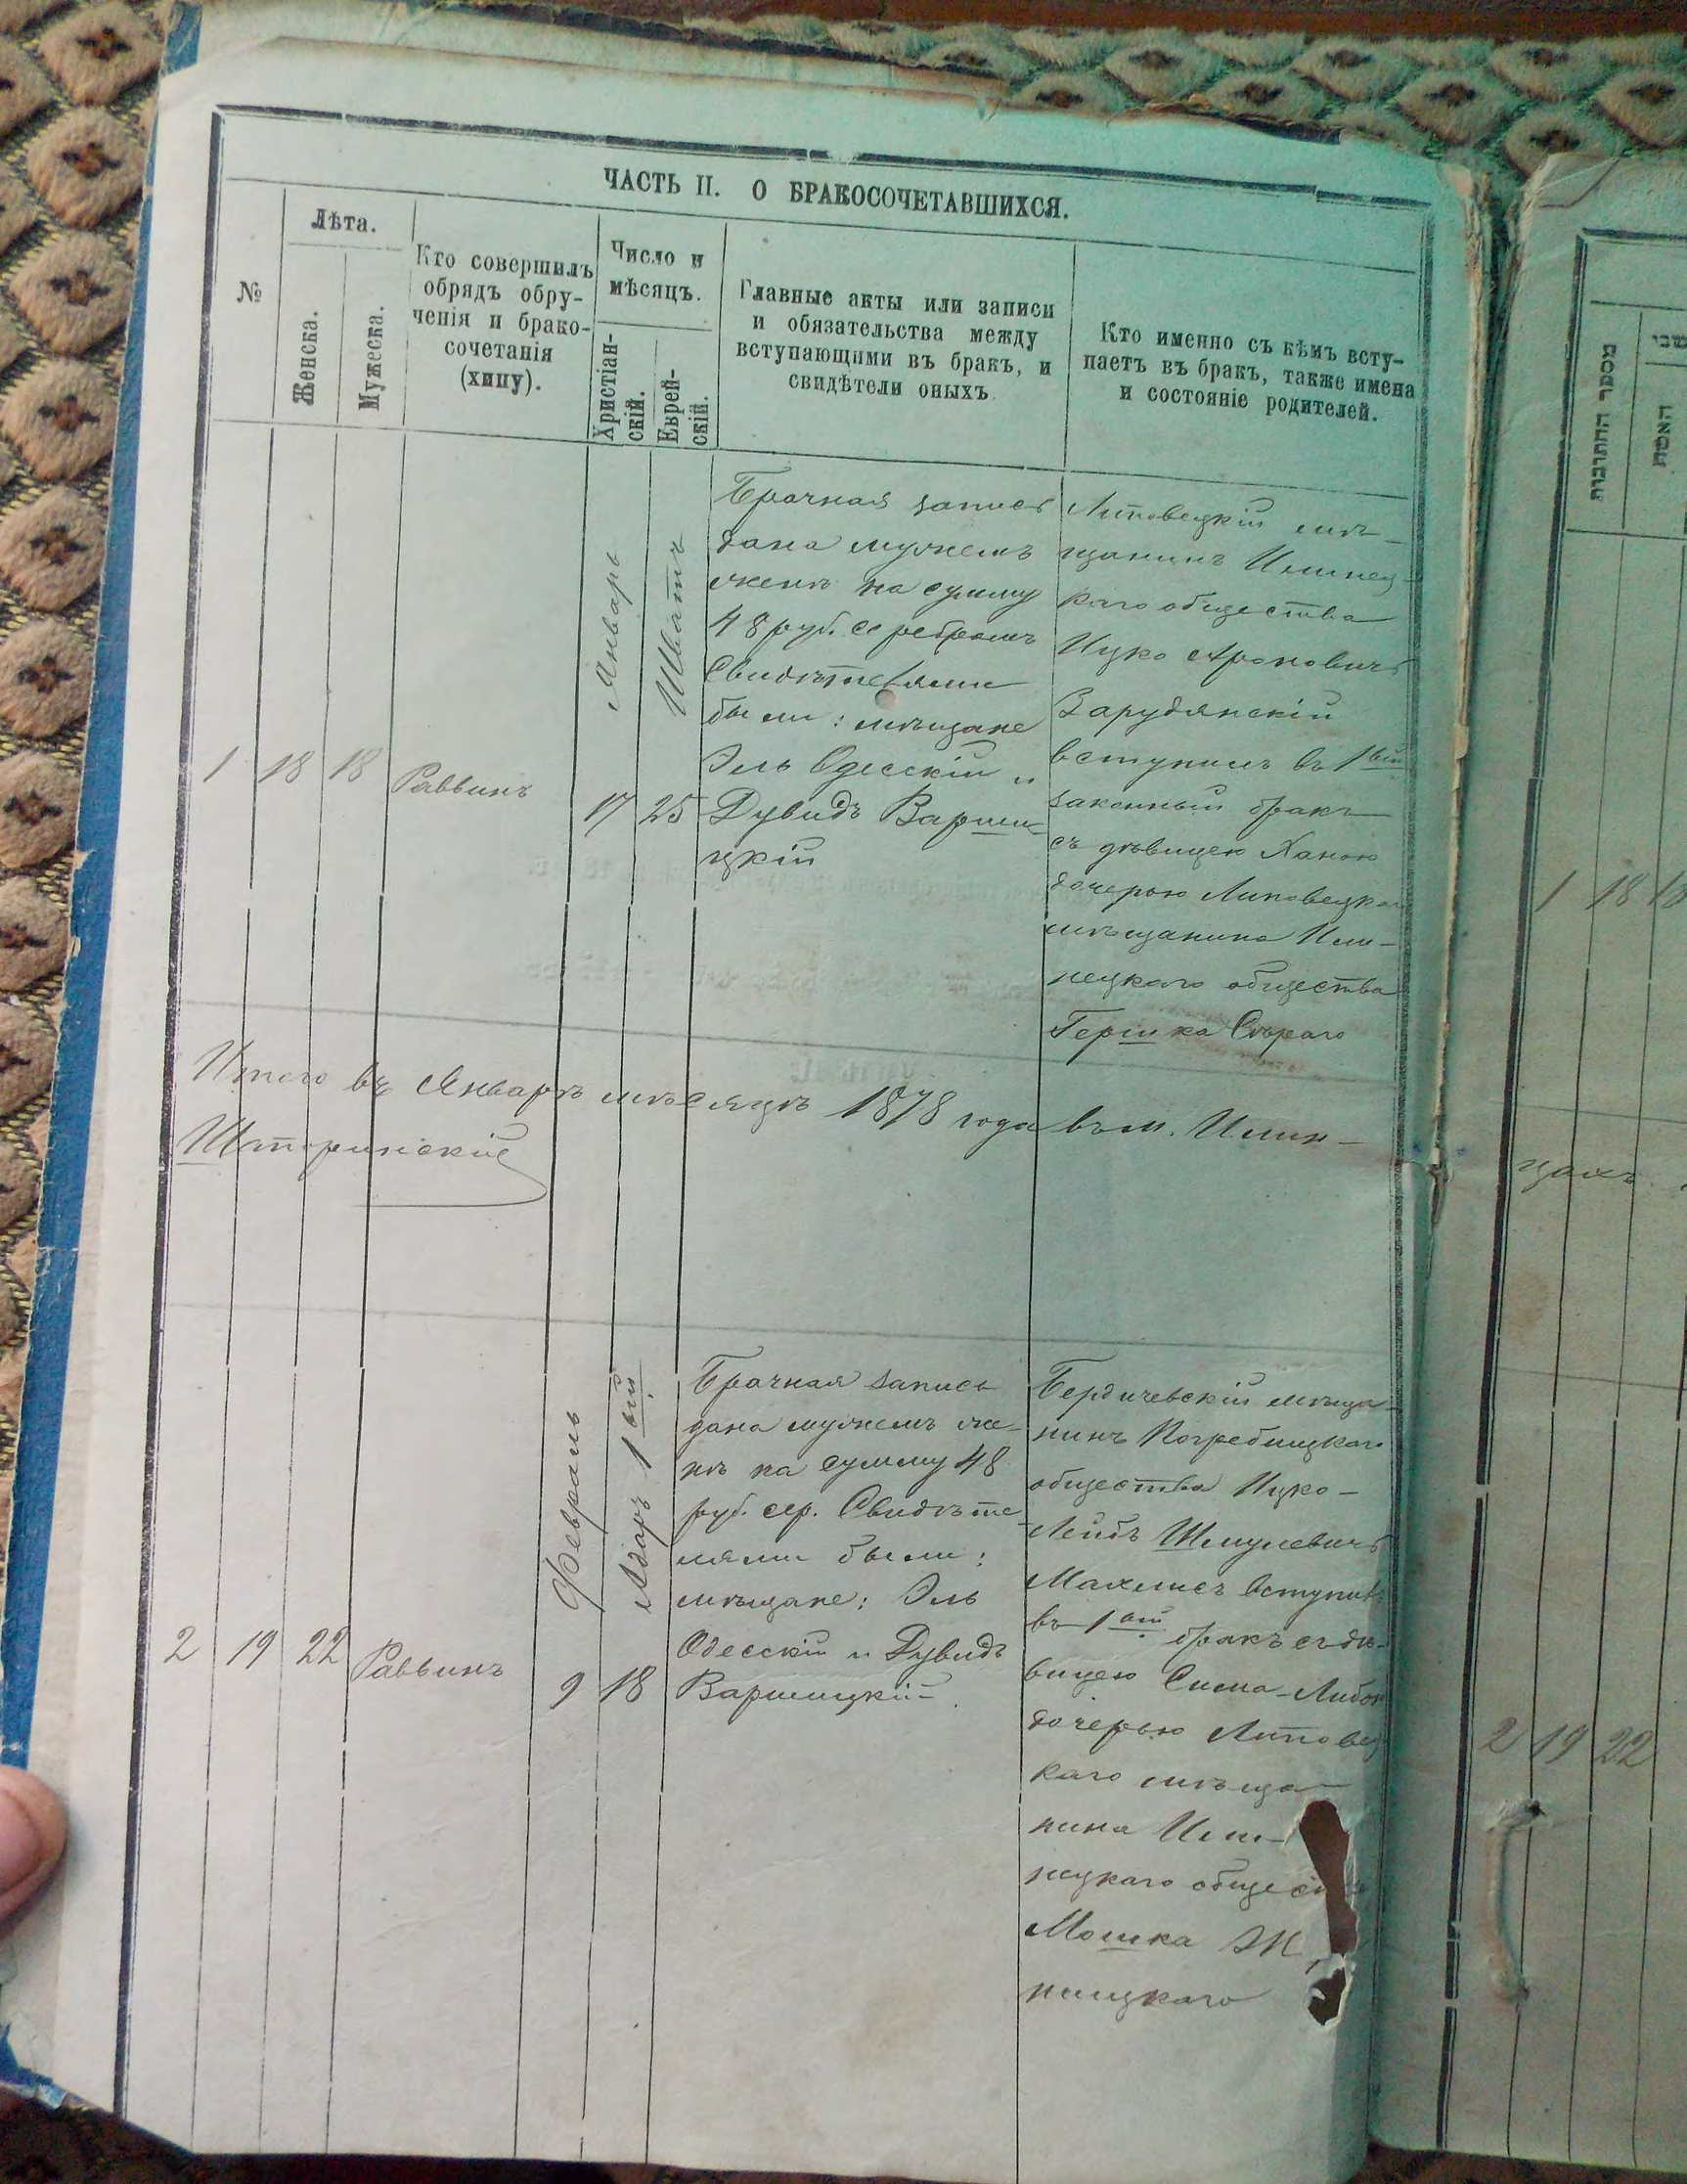 ЧАСТЬ II. О БРАКОСОЧЕТАВШИХСЯ.
№
Лѣта.
Женска.
Мужеска.
Кто совершилъ
обрядъ обру-
ченія и брако-
сочетанія
(хипу).
Число и
мѣсяцъ.
Христіан-
скій.
Еврей-
скій.
Главные акты или записи
и обязательства между
вступающими въ бракъ, и
свидѣтели оныхъ.
Кто именно съ кѣмъ всту-
паетъ въ бракъ, также имена
и состояніе родителей.
1
18
18
Раввинъ
Январь
17
Шватъ
25
Брачная запись
дана мужемъ
женѣ на сумму
48 руб. серебромъ
Свидѣтелями
были: мѣщане
Эль Одесскій и
Дувидъ Варши-
цкій
Липовецкій мѣ-
щанинъ Илинец-
каго общества
Ицко Ароновичъ
Зарудянскій
вступилъ въ 1вый
законный бракъ
съ дѣвицею Ханою
дочерью Липовецкаго
мѣщанина Или-
нецкаго общества
Гершка Сѣраго
Итого въ Январѣ мѣсяцѣ 1878 года въ м. Илин-
2
19
22
Раввинъ
Февраль
9
Адаръ 1вый
18
Брачная запись
дана мужемъ же-
нѣ на сумму 48
руб. сер. Свидѣте-
лями были:
мѣщане: Эль
Одесскій и Дувидъ
Варшицкій
Бердичевскій мѣща-
нинъ Погребищкаго
общества Ицко-
Лейбъ Шмулевичъ
Махлисъ вступилъ
въ 1вый бракъ съ дѣ-
вицею Сима-Либою
дочерью Липовец
каго мѣща-
нина Или-
нецкаго общес
Мошка
ницкаго
מספר החתונות
האשה
1
18
18
цахъ
2
19
22